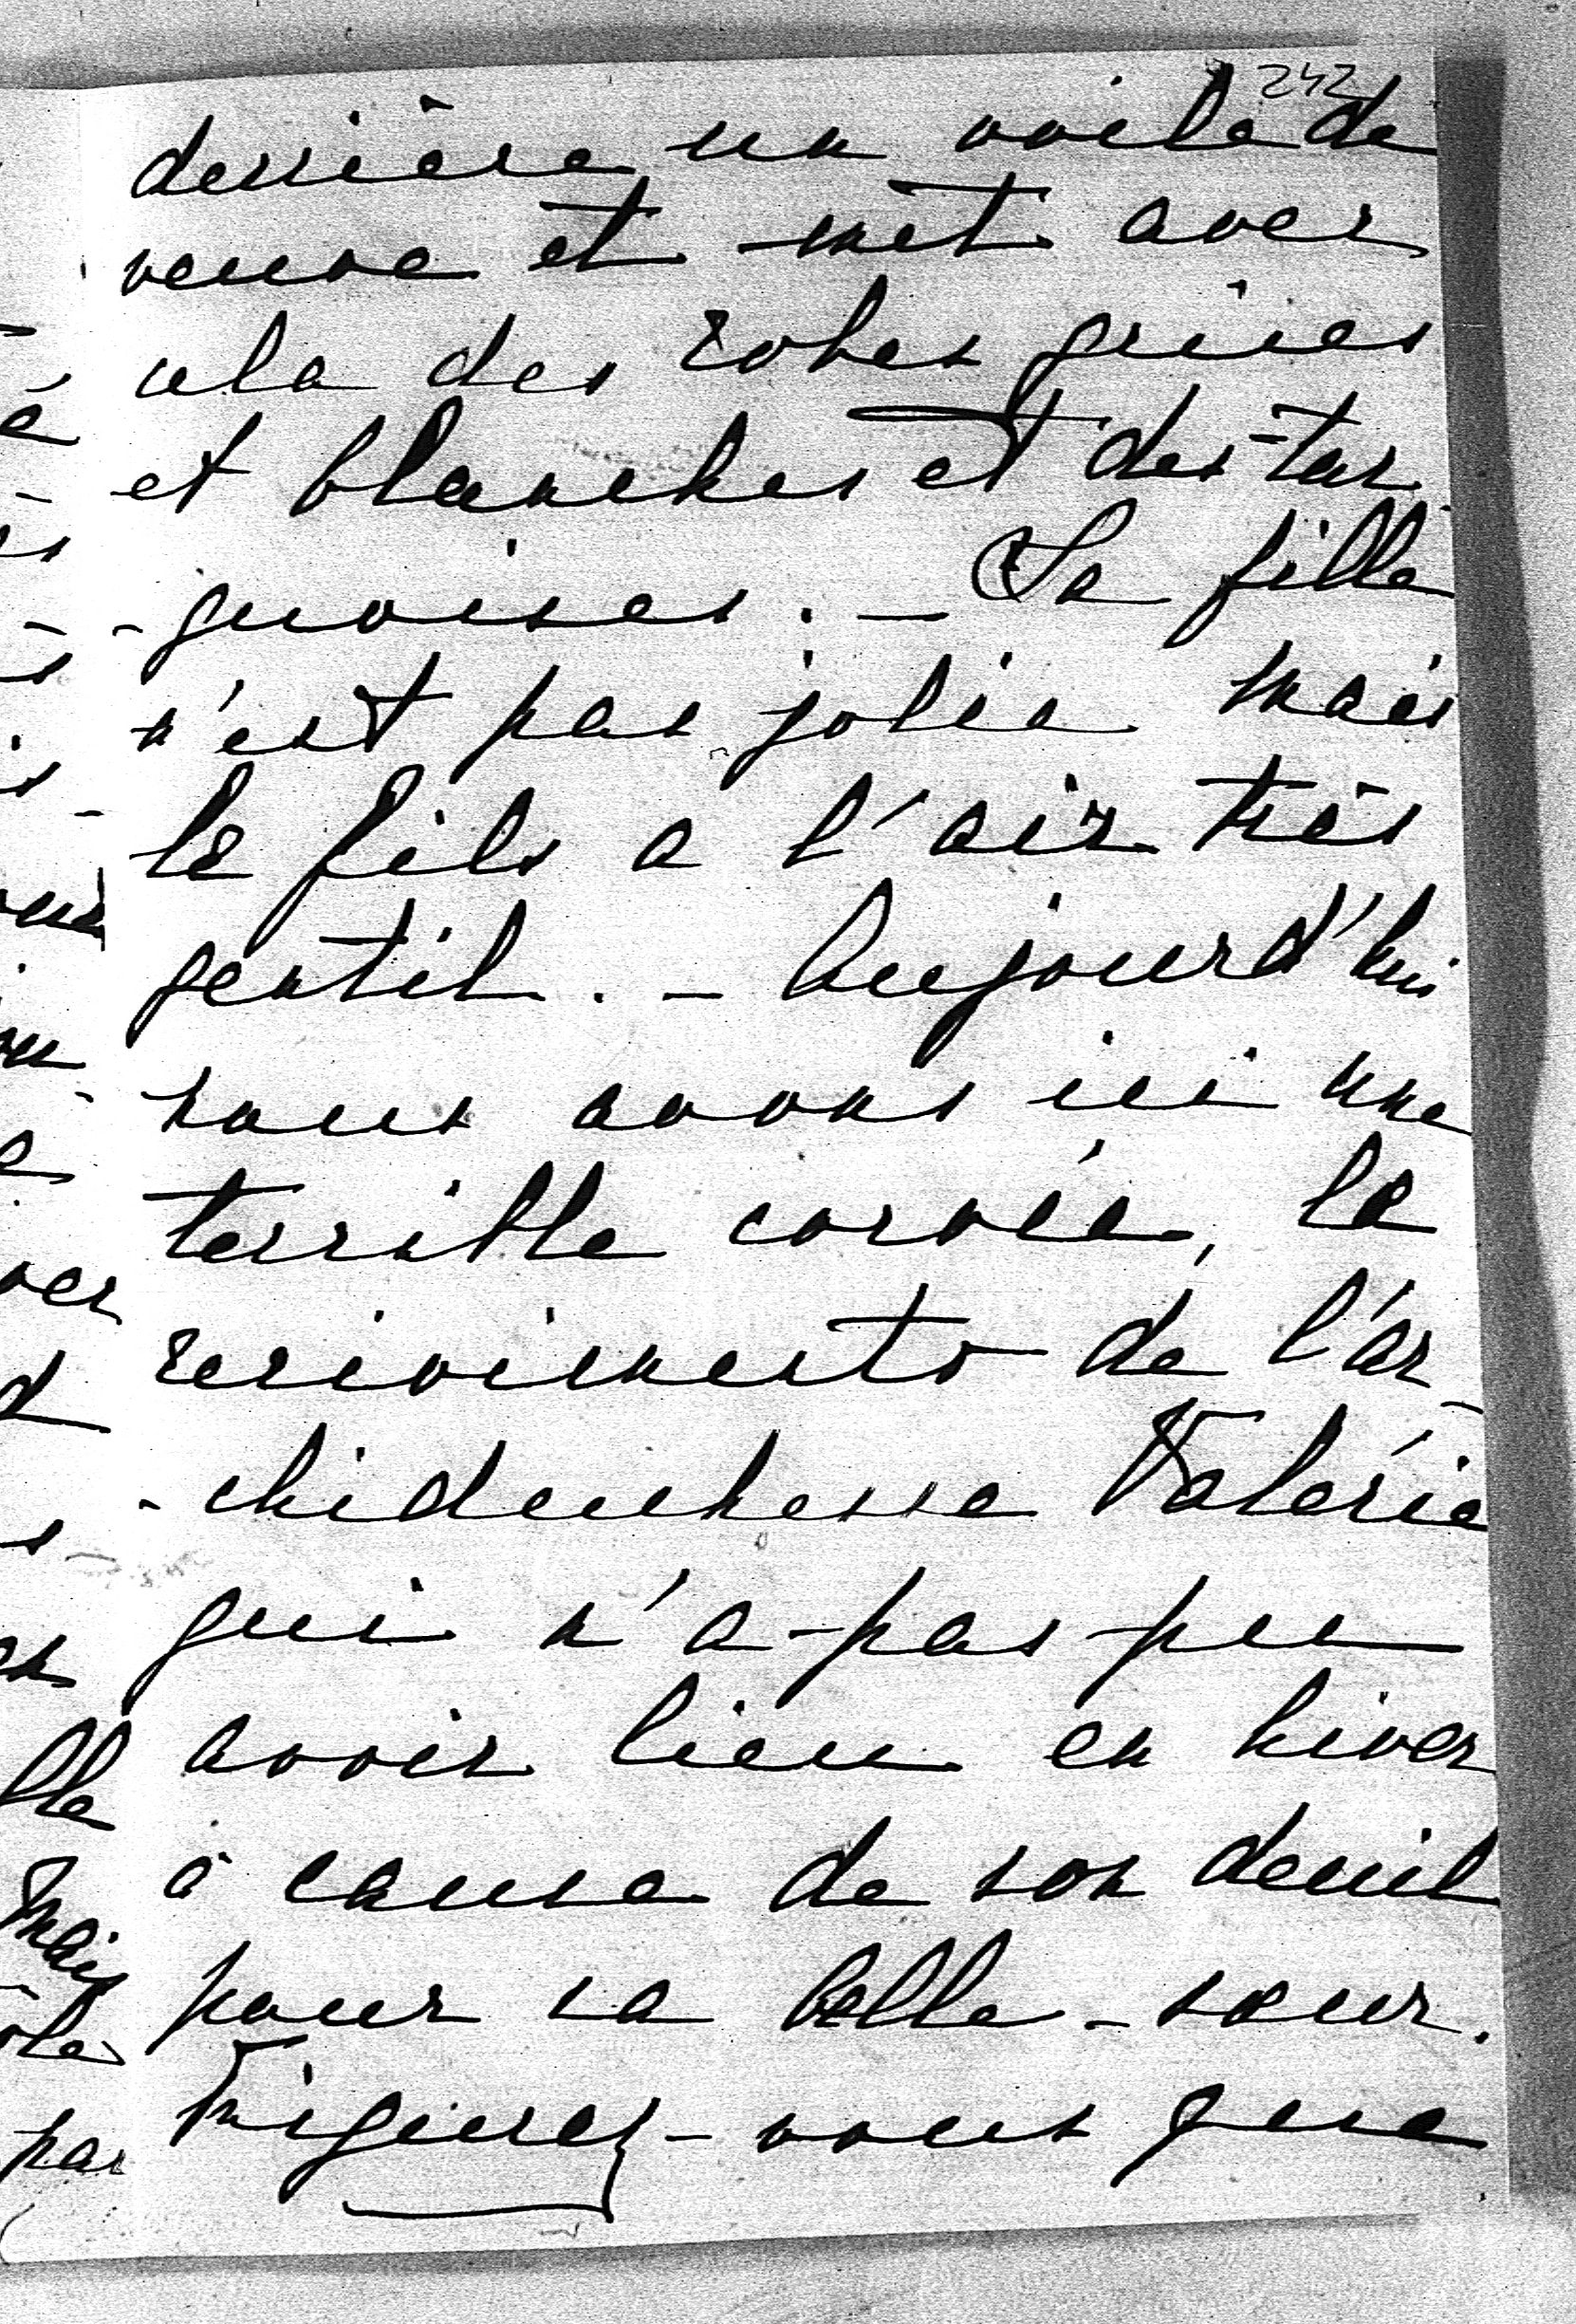 242
derrière un voile de
veuve et met avec
cela des robes grises
et blanches et des tur-
-quoises. — La fille
n'est pas jolie mais
le fils a l'air très
gentil. — Aujourd'hui
nous avons ici une
terrible corvée, le
recivimento de l'ar-
-chiduchesse Valérie
qui n'a pas pu
avoir lieu en hiver
à cause de son deuil
pour sa belle-sœur.
Figurez-vous que